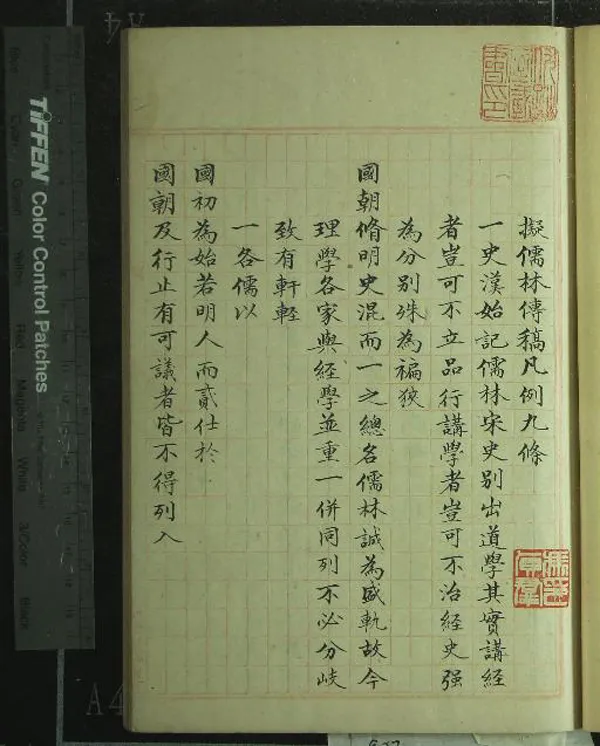 擬儒林傳稿凡例九條
一史漢始記儒林宋史别出道學其實講經
者豈可不立品行講學者豈可不治經史强
為分别殊為褊狹
國朝脩明史混而一之總名儒林誠為盛軌故今
理學各家與經學並重一併同列不必分歧
致有軒輊
一各儒以
國初為始若明人而貳仕於
國朝及行止有可議者皆不得列入
TIFFEN Color Control Patches
Blue
Cyan
Green
Yellow
Red
Magenta
White
3/Color
Black
A4